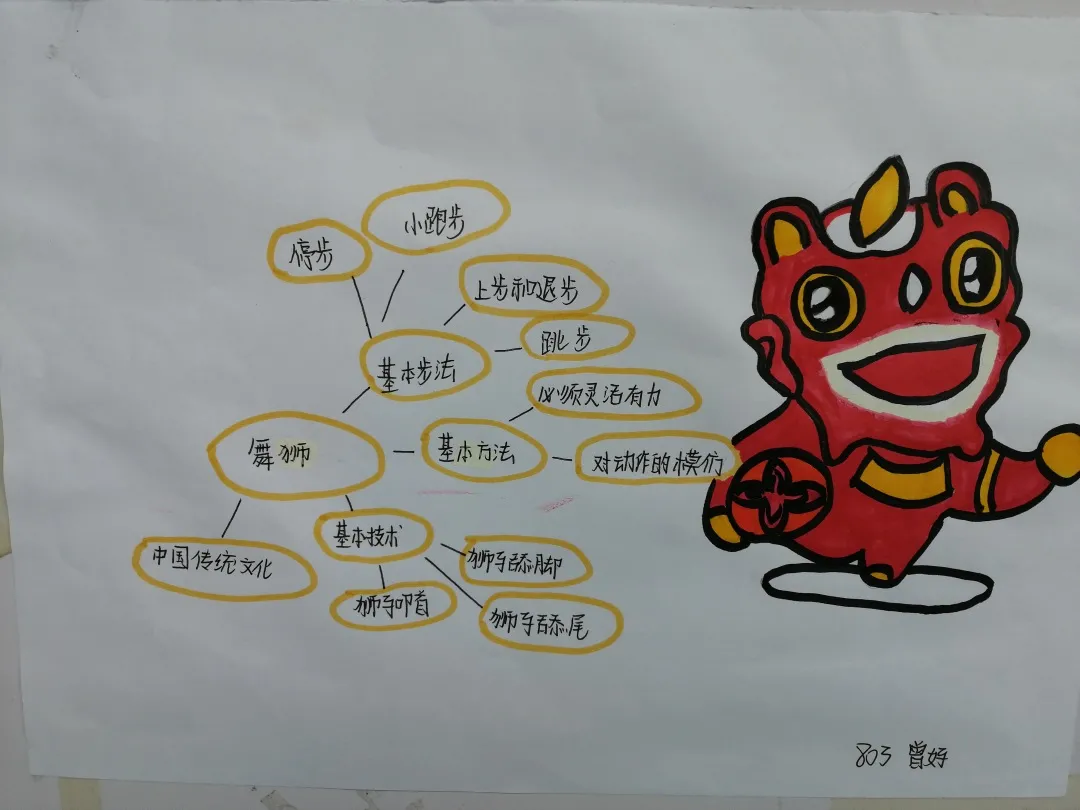 小跑步
停步
上步和退步
跳步
基本步法
必须灵活有力
舞狮
基本方法
对动作的模仿
基本技术
中国传统文化
狮子舔脚
狮子叩首
狮子舔尾
803 曾好